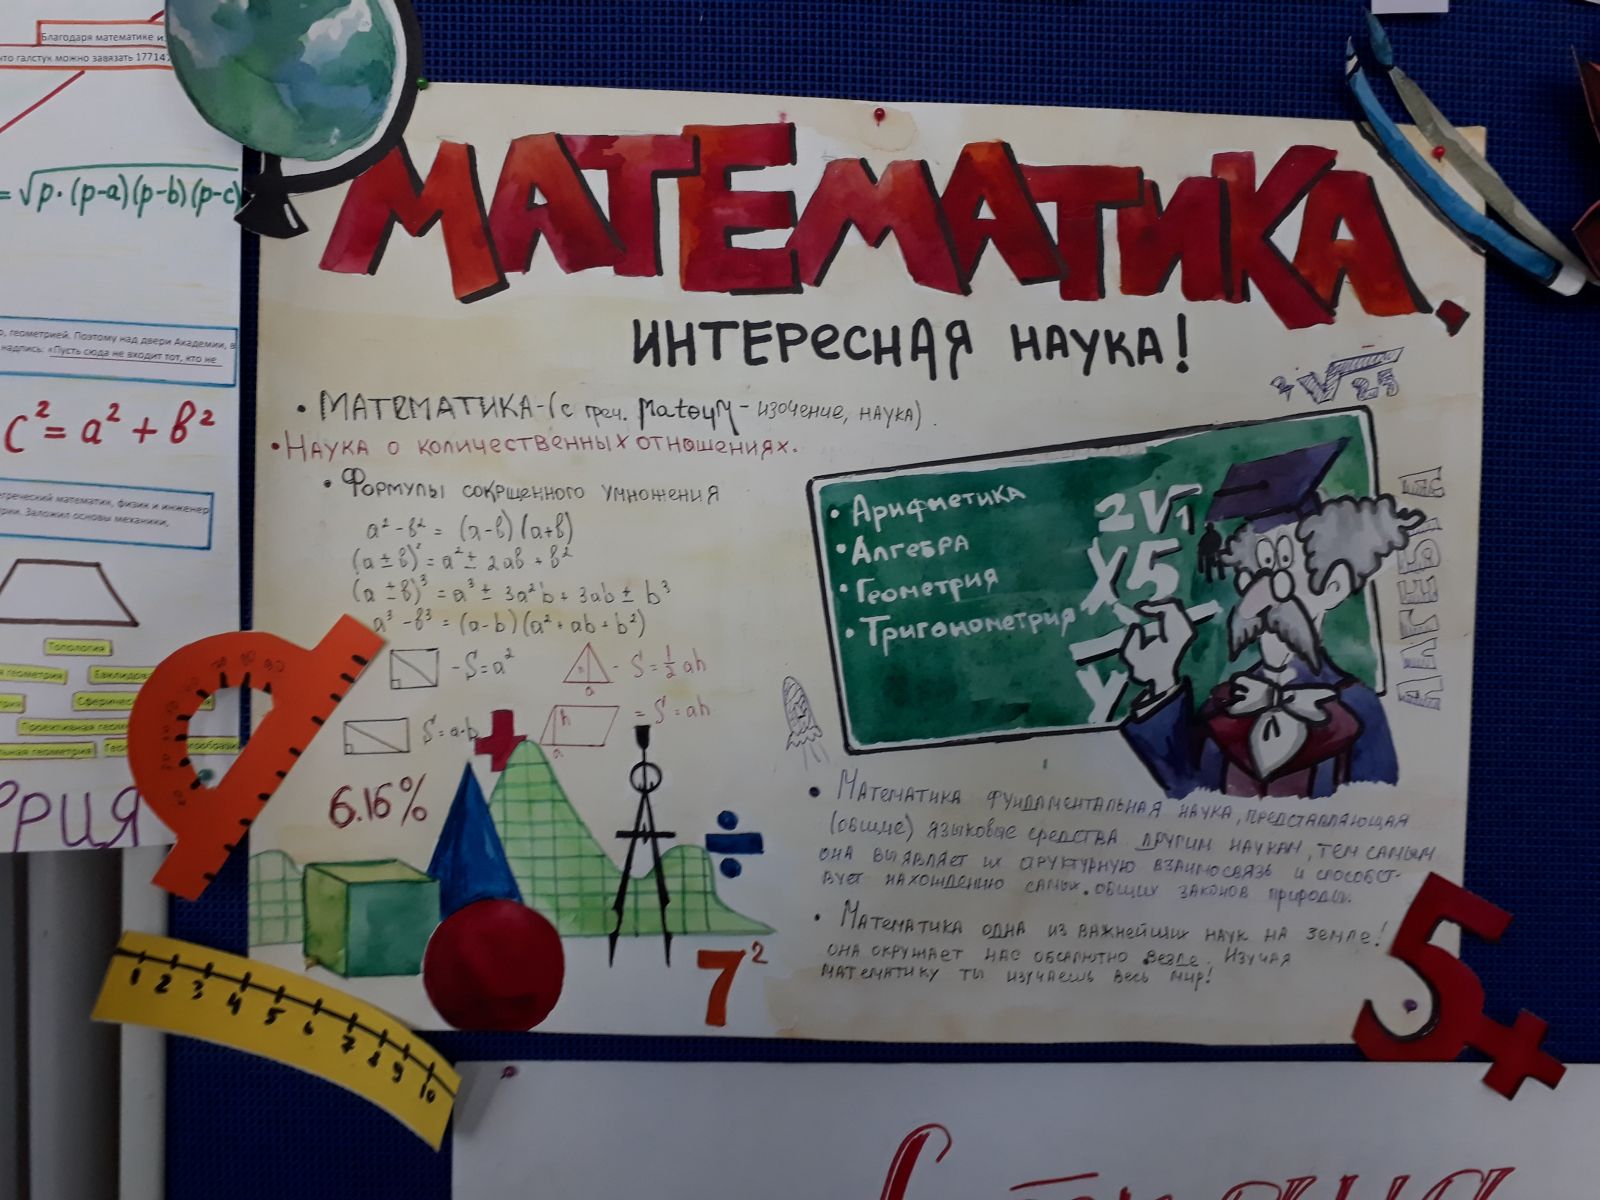 Благодаря математике
что галстук можно завязать 17714
= √p·(p-a)(p-b)(p-c)
геометрией. Поэтому над двери Академии, в
надпись: «Пусть сюда не входит тот, кто не
c² = a² + в²
математик, физик и инженер
Заложил основы механики,
Топология
геометрия
Проективная
геометрия
РИЯ
МАТЕМАТИКА.
ИНТЕРЕСНАЯ НАУКА!
• МАТЕМАТИКА-(с греч. - изочение, наука).
• Наука о количественных отношениях.
• Формулы сокрщенного умножения
a² - в² = (a-в)(a+в)
(a ± в)² = a² ± 2aв + в²
(a ± в)³ = a³ ± 3a²b + 3ab ± b³
a³ - в³ = (a-b)(a²+ab+b²)
- S=a²
h
a
- S=½ah
S=a·b
h
a
= S=ah
6.16%
7²
2√25
• Арифметика
• Алгебра
• Геометрия
• Тригонометрия
2√1
X5
У
• Математика фундаментальная наука, представляющая
(общие) языковые средства другим наукам, тем самым
она выявляет их структурную взаимосвязь и способст-
вует нахождению самых общих законов природы.
• Математика одна из важнейших наук на земле!
она окружает нас обсалютно везде. Изучая
математику ты изучаешь весь мир!
1 2 3 4 5 6 7 8 9 10
5+